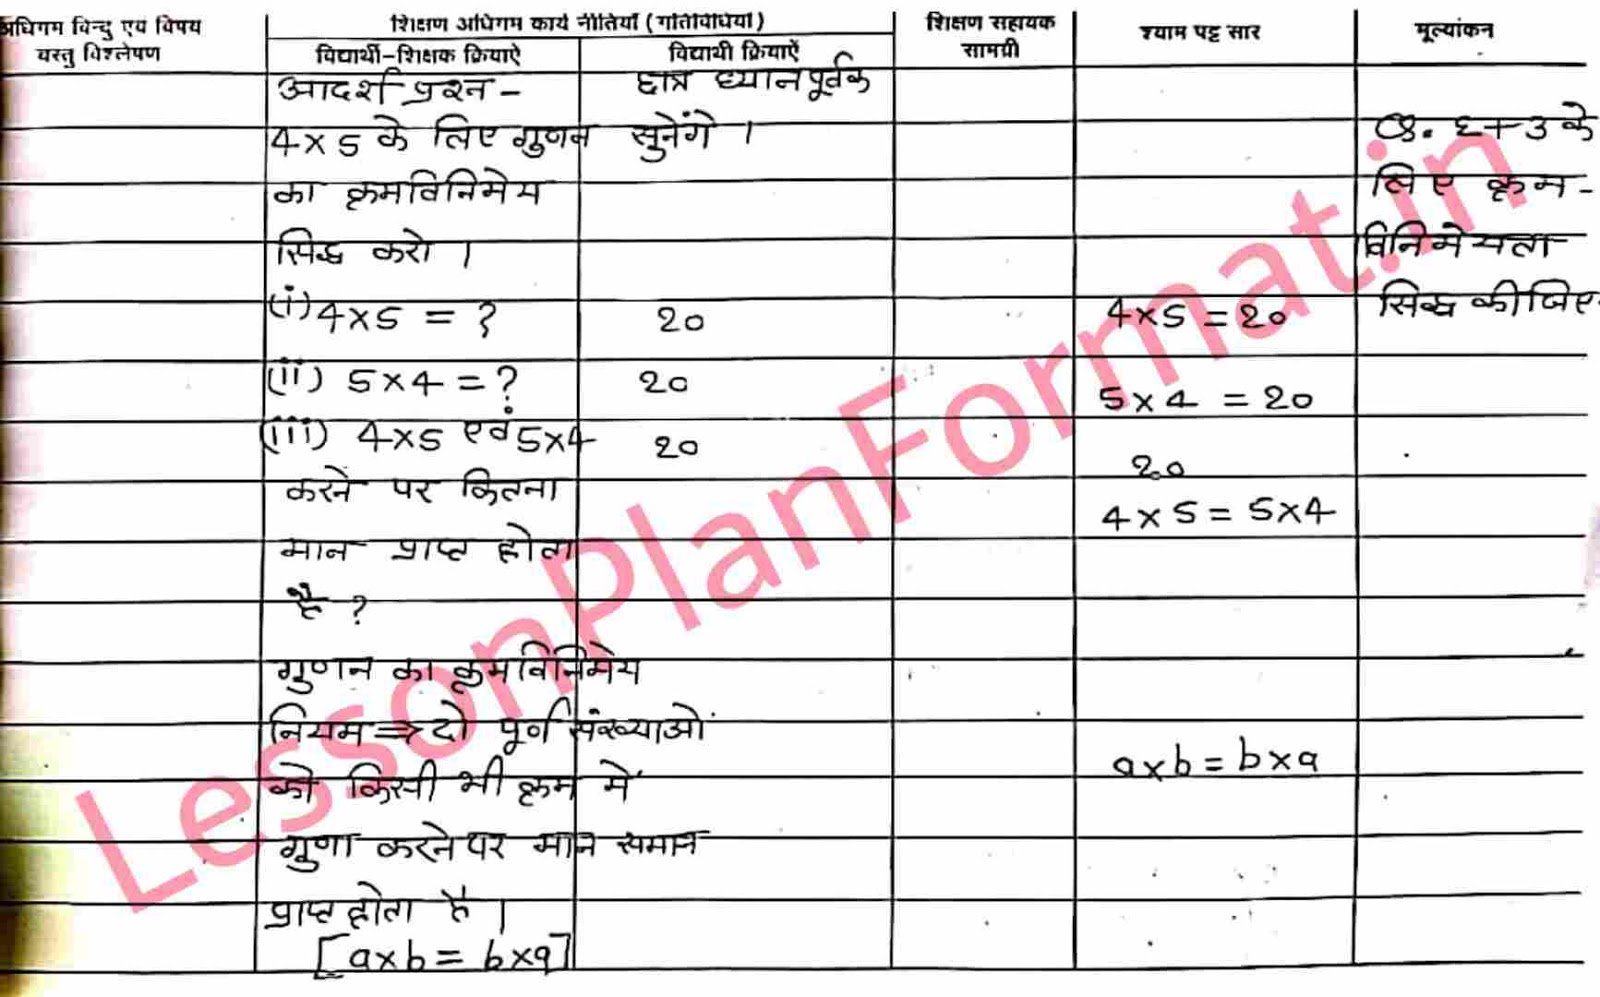 अधिगम विन्दु एवं विषय वस्तु विश्लेषण
शिक्षण अधिगम कार्य नीतियाँ (गतिविधियाँ)
विद्यार्थी-शिक्षक क्रियाऐं
विद्यार्थी क्रियाऐं
शिक्षण सहायक सामग्री
श्याम पट्ट सार
मूल्यांकन
आदर्श प्रश्न -
4 × 5 के लिए गुणन
का क्रमविनिमेय
सिद्ध करो ।
(i) 4 × 5 = ?
(ii) 5 × 4 = ?
(iii) 4 × 5 एवं 5 × 4
करने पर कितना
मान प्राप्त होता
है ?
गुणन का क्रमविनिमेय
नियम ⇒ दो पूर्ण संख्याओं
को किसी भी क्रम में
गुणा करने पर मान समान
प्राप्त होता है ।
[a×b = b×a]
छात्र ध्यानपूर्वक
सुनेंगे ।
20
20
20
4 × 5 = 20
5 × 4 = 20
20
4 × 5 = 5 × 4
a×b = b×a
६+3 के
लिए क्रम-
विनिमेयता
सिद्ध कीजिए
LessonPlanFormat.in